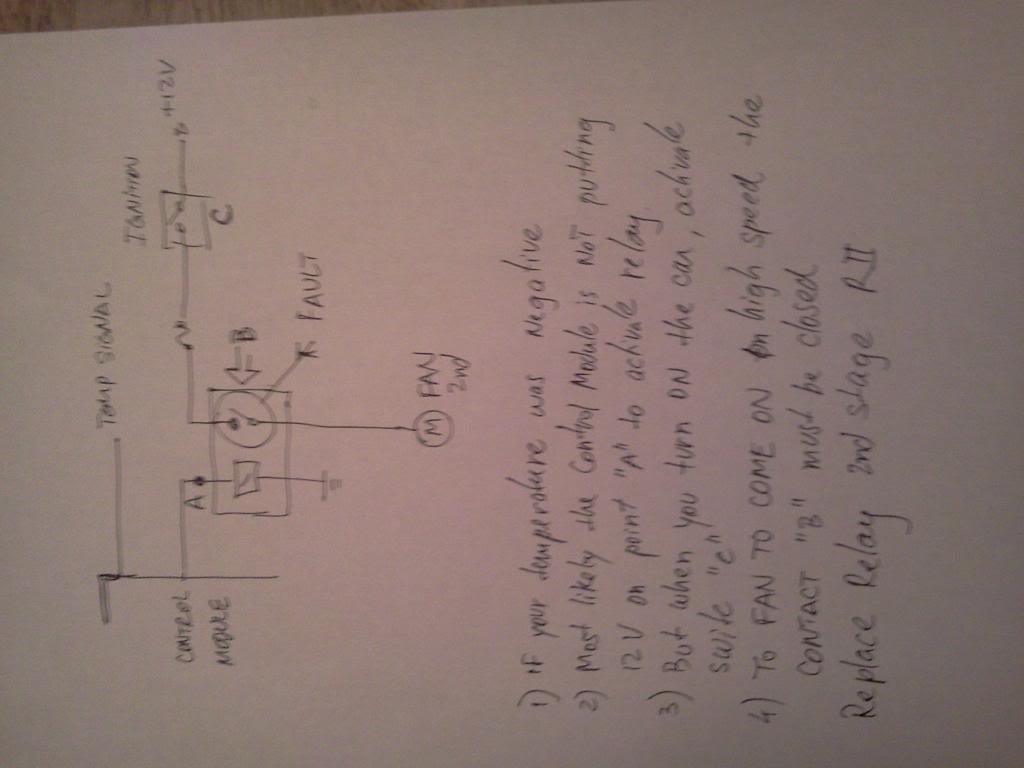 TEMP SIGNAL
IGNITION
+12V
C
CONTROL
MODULE
A
B
FAULT
M
FAN
2nd
1) IF your temperature was negative
2) Most likely the Control Module is NOT putting
12V on point "A" to activale relay
3) But when you turn ON the can, activale
swite "C"
4) TO FAN TO COME ON on high speed the
CONTACT "B" must be closed
Replace Relay 2nd stage RII